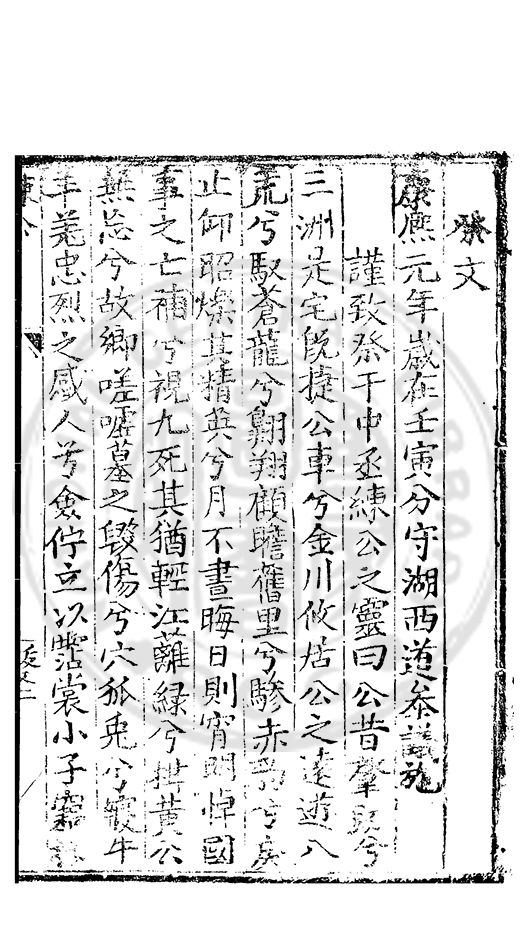 祭文
康熈元年歲在壬寅分守湖西道叅議施
謹致祭于中丞練公之靈曰公昔肇
三洲是宅旣捷公車兮金川攸居公之遠逝八
荒兮馭蒼龍兮翺翔顧瞻舊里兮驂赤
止仰昭爍其精英兮月不晝晦日則宵明悼國
事之亡補兮視九死其猶輕江蘺緑兮拱黄公
無忘兮故鄉嗟嗟墓之毀傷兮穴狐兎兮窾牛
羊羌忠烈之感人兮僉佇立以霑裳小子